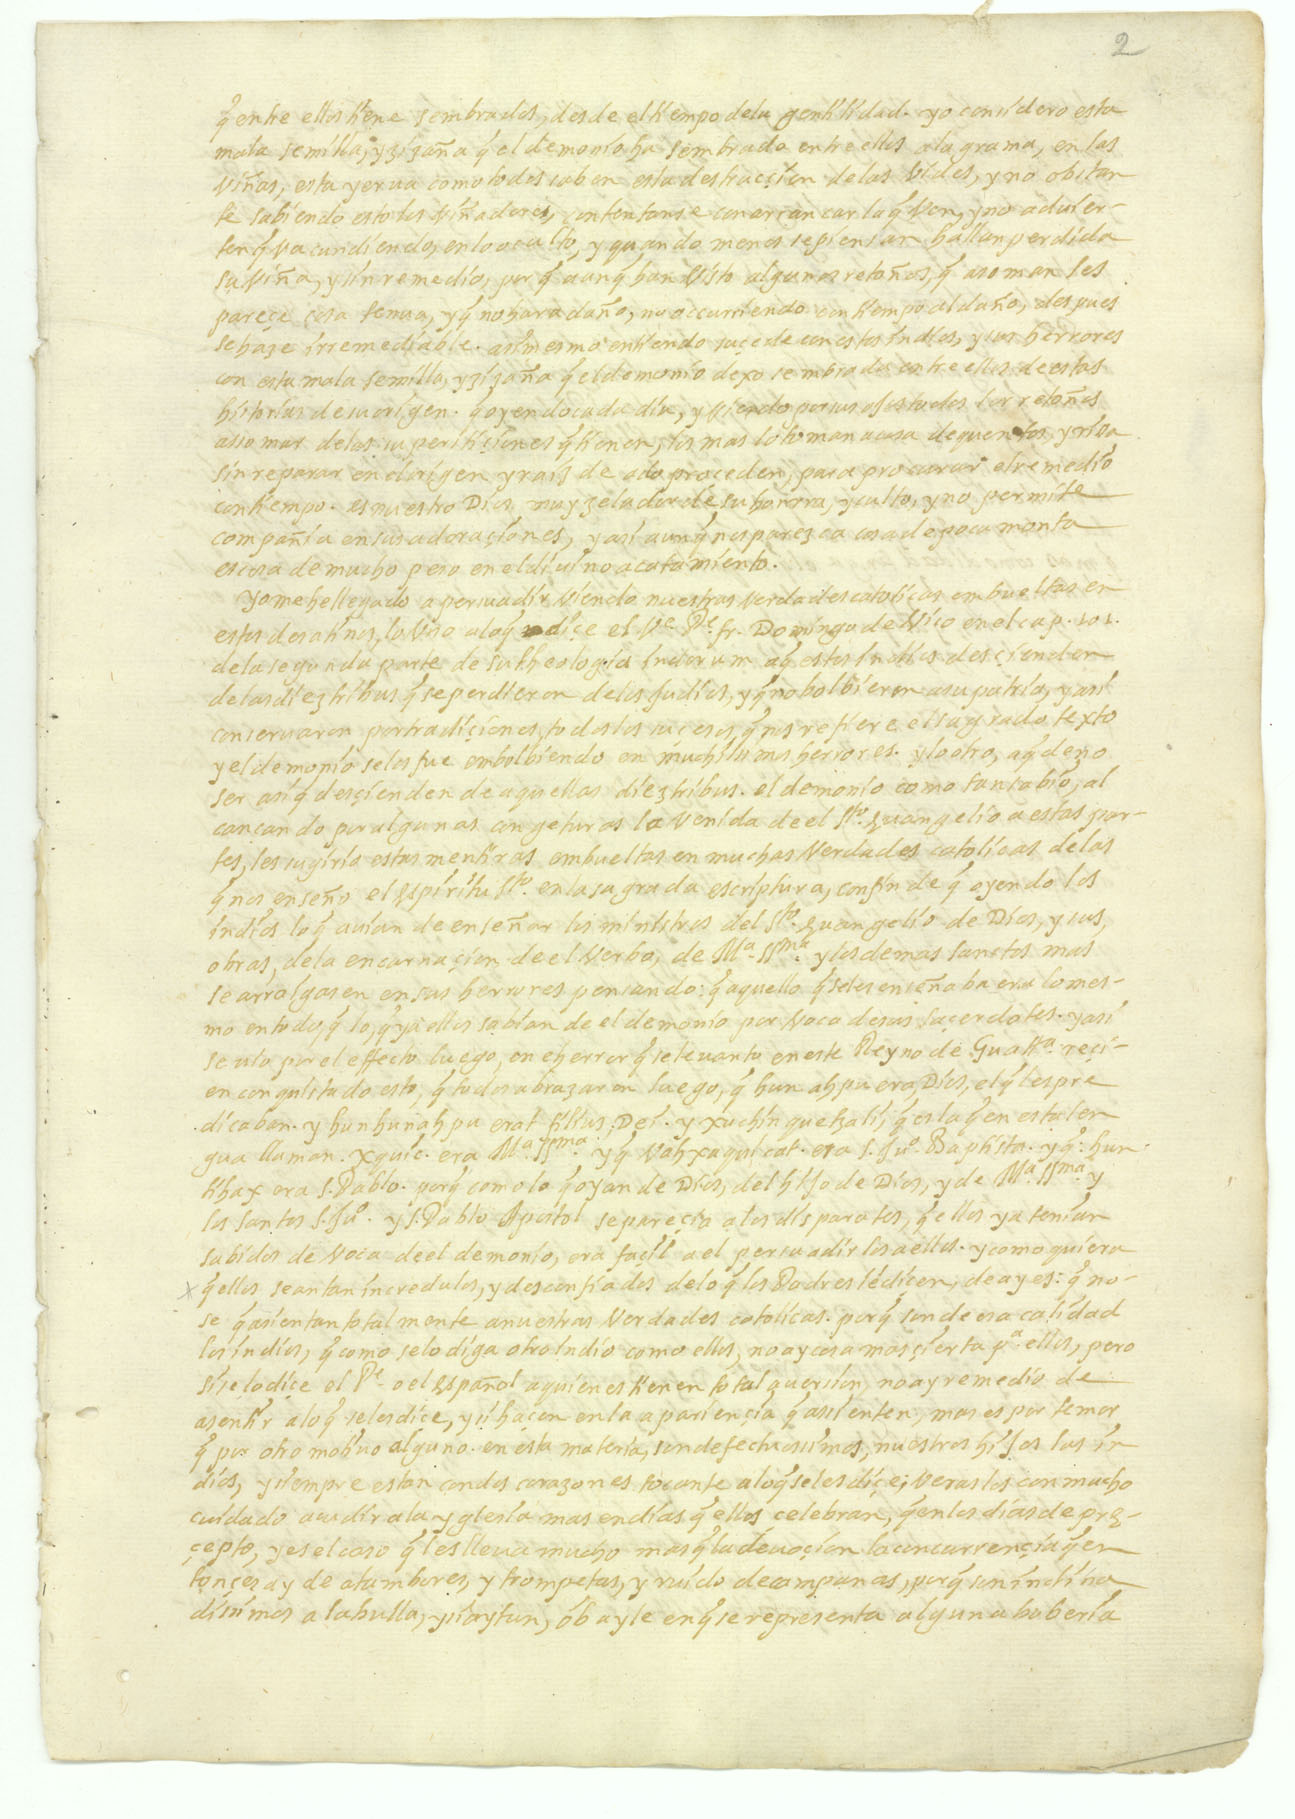 2
q̃ entre ellos tiene sembrados, desde el tiempo dela gentilidad. yo considero esta
mala semilla, y zizaña q̃ el demonio ha sembrado entre ellos a la grama, en las
viñas, esta yerua como todos saben esta destrucçion delas vides, y no obstan
te sabiendo esto los viñadores, contentanse con arrancar la q̃ ven, y no aduier-
ten q̃ va cundiendo, enlo oculto, y quando menos se piensan hallan perdida
su viña, y sin remedio, por q̃ aunq̃ han visto algunos retoños, q̃ asoman les
pareçe cosa tenua, y q̃ no hara daño, no occurriendo con tiempo al daño, despues
se haze irremediable. asimesmo entiendo suçede con estos indios, y sus herrores
con esta mala semilla, y zizaña q̃ el demonio dexo sembrada entre ellos de estas
historias de su origen. q̃ oyendo cada dia, y viendo por sus ojos todos los retoños
assomar delas supertiçiones q̃ tienen, los mas lo toman a cosa de quentos, y risa
sin reparar en el origen y rais de ado proceden, para procurar el remedio
con tiempo. es nuestro Dios muy zelador de su honrra, y culto, y no permite
compañia en sus adoraçiones, y asi aunq̃ nos parezca cosa de poca monta
es cosa de mucho peso en el diuino acatamiento.
Yo me he llegado a persuadir viendo nuestras verdades catolicas embueltas en
estos desatinos, lo vno a lo q̃ diçe el Ve. Pe. fr. Domingo de Vico en el cap. 101.
dela segunda parte de su theologia indorum a q̃ estos indios desçienden
de las diez tribus q̃ se perdieron delos judios, y q̃ no bolbieron a su patria, y asi
conseruaron por tradiçiones, todos los sucesos, q̃ nos refiere el sagrado texto
y el demonio se los fue embolbiendo en muchissimos herrores. y lo otro, a q̃ de no
ser asi q̃ desçienden de aquellas diez tribus. el demonio como tan sabio, al
cançando por algunas congeturas la venida de el Sto. Euangelio a estas par-
tes, les sugirio estas mentiras embueltas en muchas verdades catolicas delas
q̃ nos enseño el Espiritu Sto. en la sagrada escriptura, con fin de q̃ oyendo los
indios lo q̃ auian de enseñar los ministros del Sto. Euangelio de Dios, y sus
obras, dela encarnaçion de el Verbo, de Ma. SSma. y los demas sanctos mas
se arraygasen en sus herrores pensando: q̃ aquello q̃ se les enseñaba era lo mes-
mo en todo, q̃ lo, q̃ ya ellos sabian de el demonio por voca de sus saçerdotes. y asi
se vio por el effecto luego, en el herror q̃ se leuanto en este Reyno de Guatta. reçi-
en conquistado esto, q̃ todos abrazaron luego, q̃ hun ahpu era, Dios, el q̃ les pre
dicaban. y hun hunahpu erat filius, Dei. y xuchin quetzali, q̃ es la q̃ en esta len
gua llaman. Xquic. era Ma. SSma. y q̃ Vahxaquicat. era S. Juo. Baptista. y q̃. hun
tihax era S. Pablo. porq̃ como lo q̃ oyan de Dios, del hijo de Dios, y de Ma. SSma. y
los santos S. Juo. y S. Pablo Apostol se pareçia a los disparates, q̃ ellos ya tenian
sabidos de voca de el demonio, era façil a el persuadirlos a ellos. y como quiera
q̃ ellos sean tan incredulos, y desconfiados delo q̃ los Padres les diçen, de ay es: q̃ no-
se q̃ asientan totalmente a nuestras verdades catolicas. porq̃ son de esa calidad
los indios, q̃ como se lo diga otro indio como ellos, no ay cosa mas çierta pa. ellos, pero
si se lo diçe el Pe. o el Español a quienes tienen total auersion no ay remedio de
asentir a lo q̃ se les diçe, y si haçen en la apariençia q̃ asienten, mas es por temor
q̃ por otro motiuo alguno. en esta materia, son defectuosissimos, nuestros hijos los in
dios, y siempre estan con dos corazones tocante a lo q̃ se les diçe; veras los con mucho
cuidado acudir a la yglesia mas en dias q̃ ellos çelebran, q̃ en los dias de pre-
çepto, y es el caso q̃ les lleua mucho mas q̃ la deuoçion la concurrençia q̃ en
tonçes ay de atambores, y trompetas, y ruido de campanas, porq̃ son inclina
dissimos a la bulla, y si ay tun, ó bayle en q̃ se representa alguna boberia